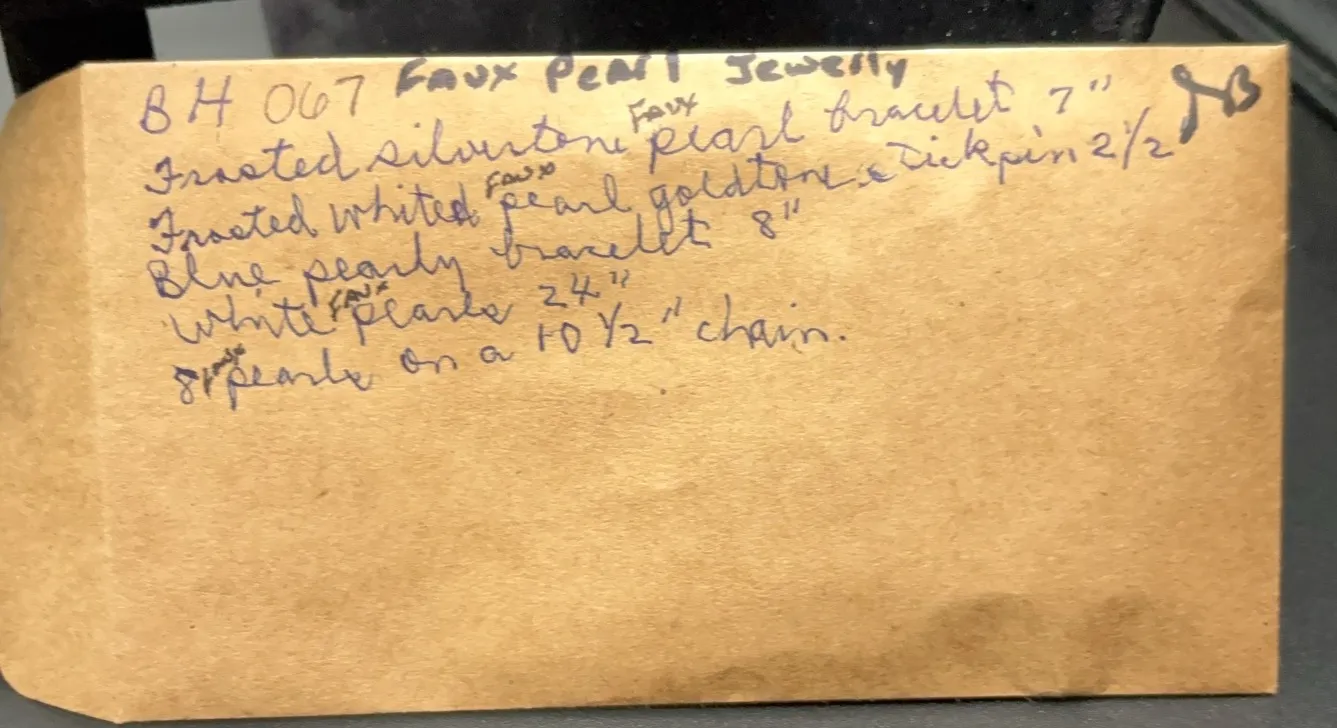 BH 067 Faux Pearl Jewelly JB
Frosted silvertone Faux pearl bracelet 7"
Frosted whited Faux pearl goldtone stickpin 2 1/2"
Blue pearly bracelet 8"
White Faux pearls 24"
8 Faux pearls on a 10 1/2" chain.